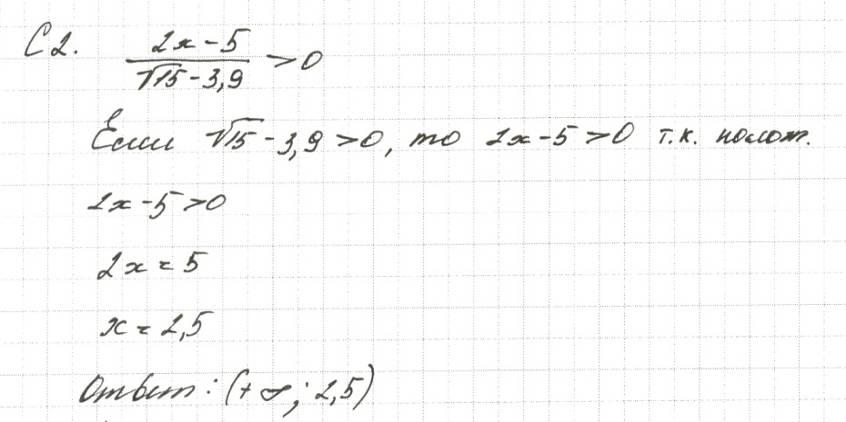 С2. (2x-5)/(√15-3,9) > 0
Если √15-3,9>0, то 2x-5>0 т.к. полож.
2x-5>0
2x=5
x=2,5
Ответ: (+∞; 2,5)